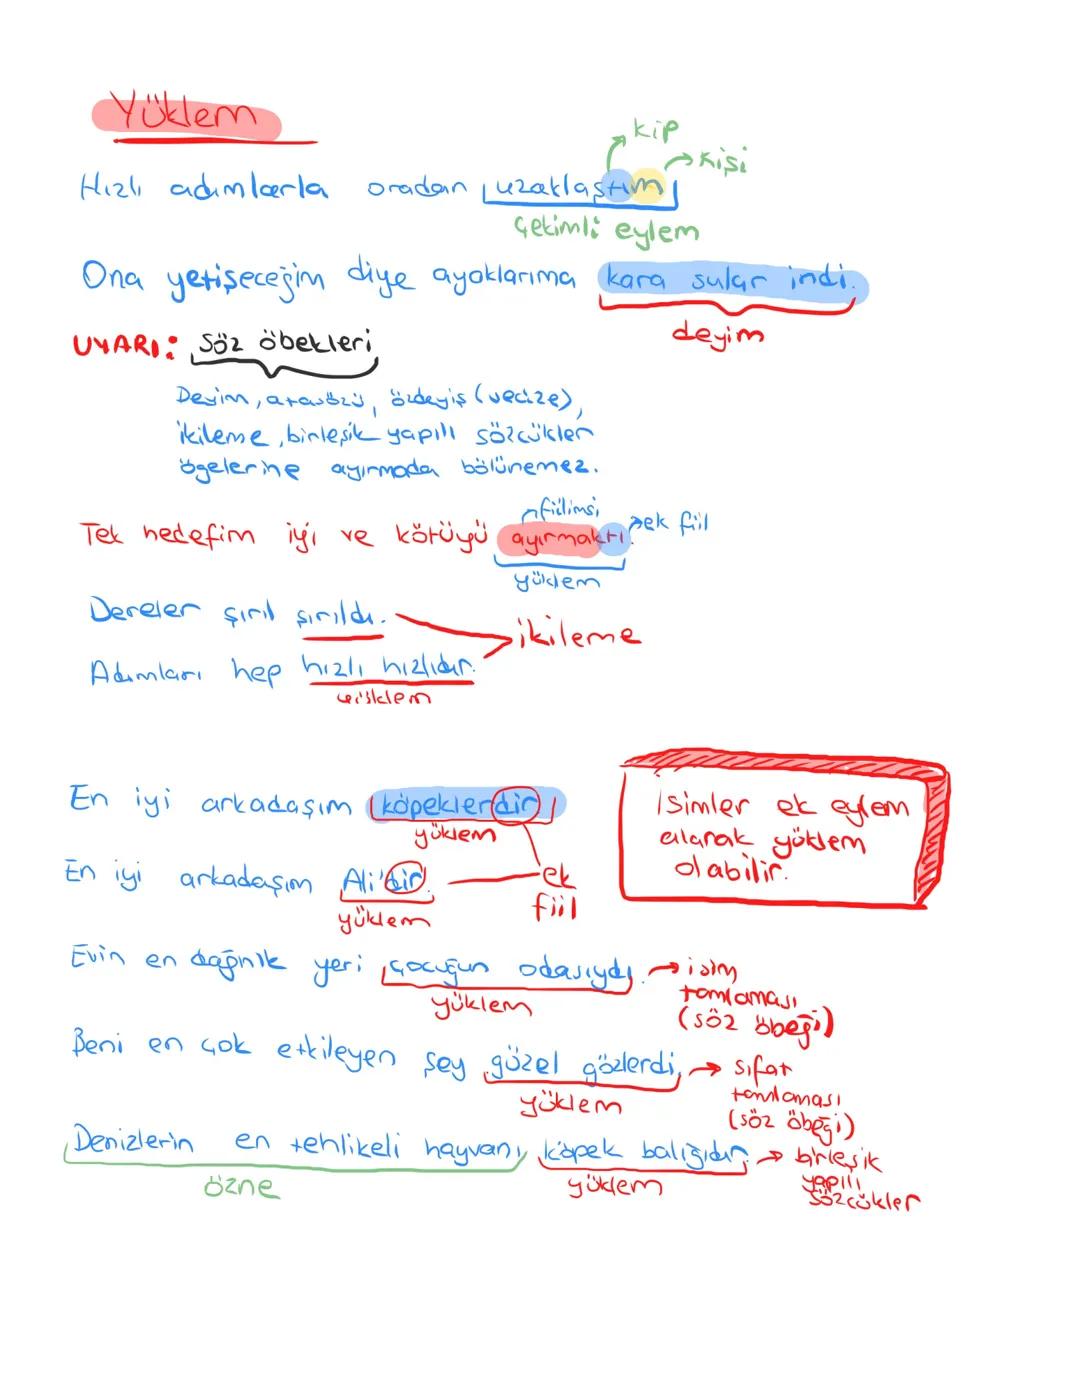 Yüklem
kip
kişi
Hızlı adımlarla oradan uzaklaştım
Çekimli eylem
Ona yetişeceğim diye ayaklarıma kara sular indi.
deyim
UYARI: Söz öbekleri
Deyim, atasözü, özdeyiş (vecize),
ikileme, birleşik yapılı sözcükler
ögelerine ayırmada bölünemez.
fiilimsi
ek fiil
Tek hedefim iyi ve kötüyü ayırmaktı.
yüklem
Dereler şırıl şırıldı.
ikileme
Adımları hep hızlı hızlıdır.
yüklem
En iyi arkadaşım köpeklerdir
yüklem
İsimler ek eylem
alarak yüklem
olabilir.
En iyi arkadaşım Ali'dir.
yüklem
ek
fiil
Evin en dağınık yeri çocuğun odasıydı.
yüklem
isim
tamlaması
(söz öbeği)
Beni en çok etkileyen şey güzel gözlerdi.
yüklem
sıfat
tamlaması
(söz öbeği)
Denizlerin en tehlikeli hayvanı köpek balığıdır.
özne
yüklem
birleşik
yapılı
sözcükler